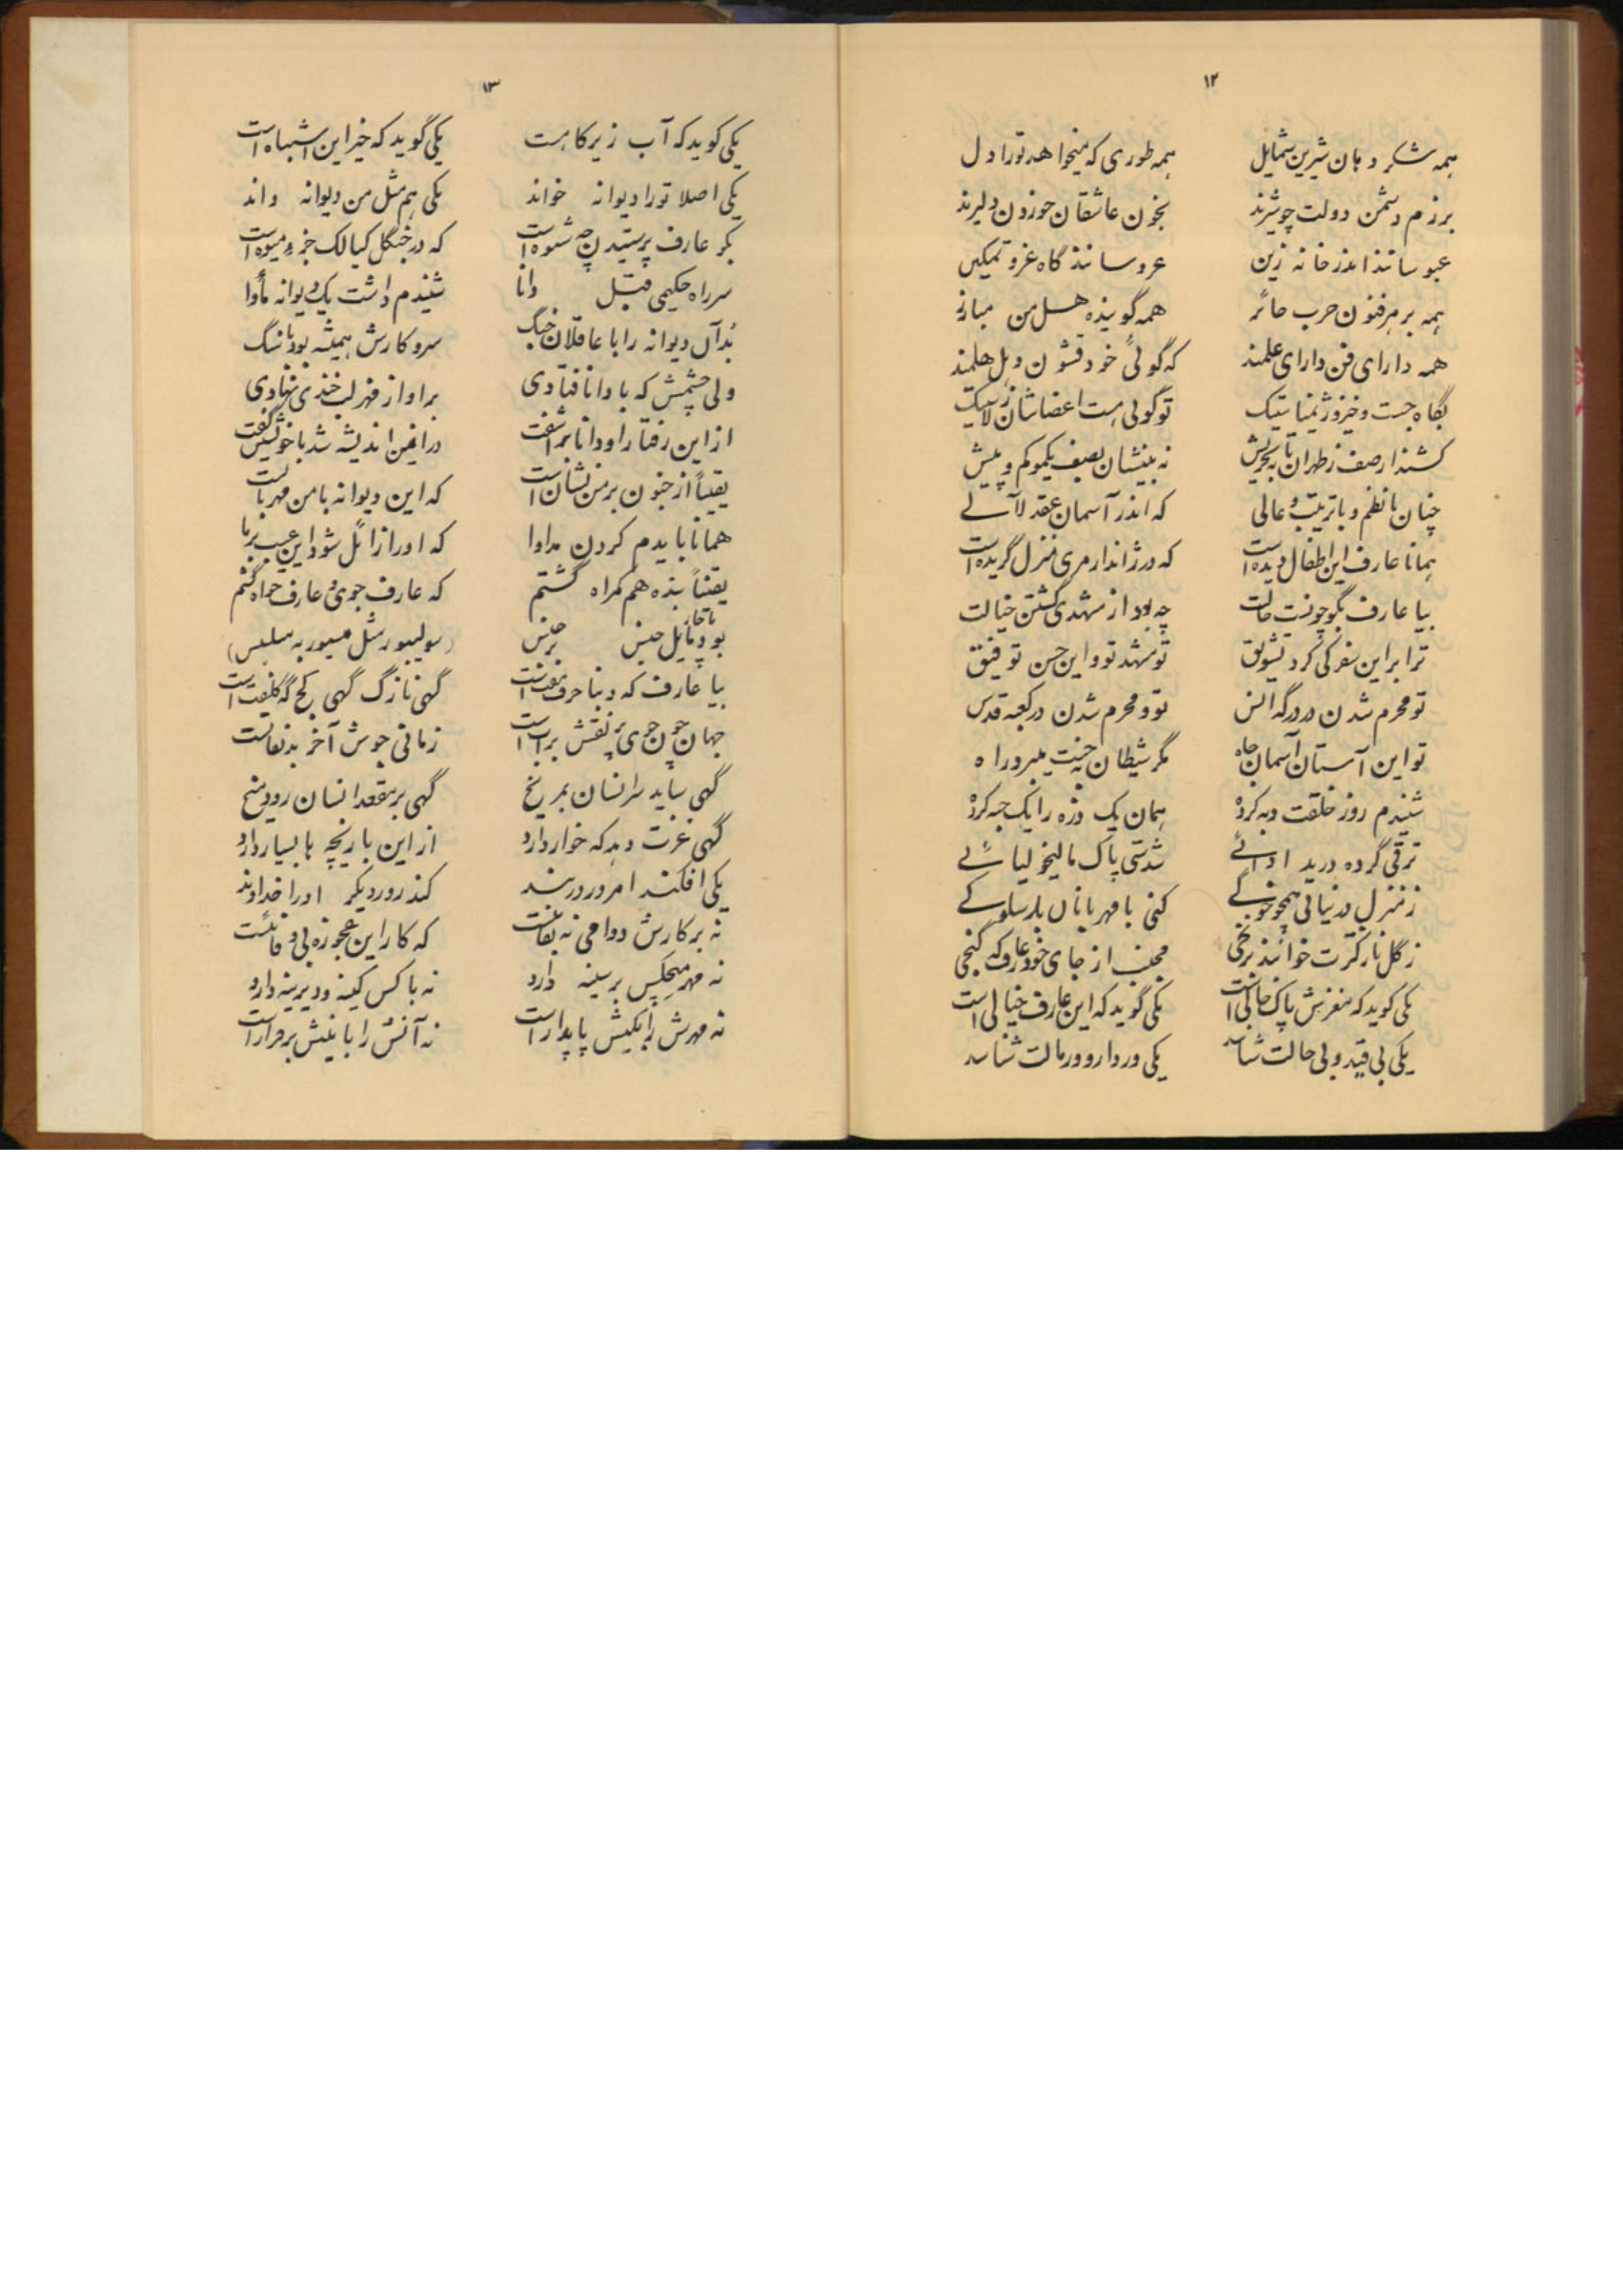 ۱۲
همه شکر دهان شیرین شمایل همه طوری که میخواهد تو را دل
برزم دشمن دولت چو شیرند بخون عاشقان خوردن دلیرند
عبوسانند اندر خانه زین عروسانند گاه غر و تمکین
همه بر هر فنون حرب حائز همه گوینده هل من مبارز
همه دارای فن دارای علمند که گوئی خود قشون ویل هلمند
بگاه جست و خیز و ژیمناستیک تو گوئی هست اعضاشان زلاستیک
کشند ار صف ز طهران تا به تجریش نه بینیشان بصف یک مو کم و بیش
چنان با نظم و با ترتیب عالی که اندر آسمان عقد لآلے
همانا عارف این اطفال دیده است که در ژاندارمری منزل گزیده است
بیا عارف بگو چونست حالت چه بود از مشهدی گشتن خیالت
ترا بر این سفر کی کرد تشویق تو و مشهد تو و این حسن توفیق
تو محرم شدن در درگه انس تو و محرم شدن در کعبه قدس
تو این آستان آسمان جاه مگر شیطان به جنت میبرد راه
شنیدم روز خلقت دبه کرده همان یک ذره را یک حبه کرده
ترقی کرده در بد ادائے شدستی پاک مالیخولیائے
ز منزل در نیائی همچو جوکے کنی با مهربانان بد سلوکے
ز گل نازکترت خوانند و رنجی مجنب از جای خود عارف که گنجی
یکی گوید که مغزش پاک خالی است یکی گوید که این عارف خیالی است
یکی بی قید و بی حالت شناسد یکی وردار و ورمالت شناسد
۱۳
یکی گوید که آب زیر کاهست یکی گوید که خیر این اشتباه است
یکی اصلا تو را دیوانه خواند یکی هم مثل من دیوانه داند
بگو عارف پرستیدن چه شیوه است که در جنگل کیالک جزء میوه است
سر راه حکیمی قبل دانا شنیدم داشت یک دیوانه مأوا
بُد آن دیوانه را با عاقلان جنگ سر و کارش همیشه بود با سنگ
ولی چشمش که با دانا فتادی بر او از قهر لبخندی نهادی
از این رفتار او دانا برآشفت در این اندیشه شد با خویشتن گفت
یقیناً از جنون بر من نشان است که این دیوانه با من مهربانست
همانا بایدم کردن مداوا که او را زائل شود این عیب بر ما
یقیناً بنده هم گمراه گشتم که عارف جوی و عارف خواه گشتم
بیا عارف که دنیا حرف مفت است گهی نازک گهی کج گه کلفت است
جهان چون خوی تو نقش بر آب است زمانی خوش آخر بد نقابست
گهی ساید سر انسان بمریخ گهی بر مقعد انسان رود میخ
گهی عزت دهد که خوار دارد از این بازیچه ها بسیار دارد
یکی افکند امروز در بند کند روز دیگر او را خداوند
نه بر کارش دوامی نه بقائست که کار این عجوزه بی وفائست
نه مهر هیچکس بر سینه دارد نه با کس کینه دیرینه دارد
نه مهرش را بکیش پایدار است نه آنش را با نیش برقرار است